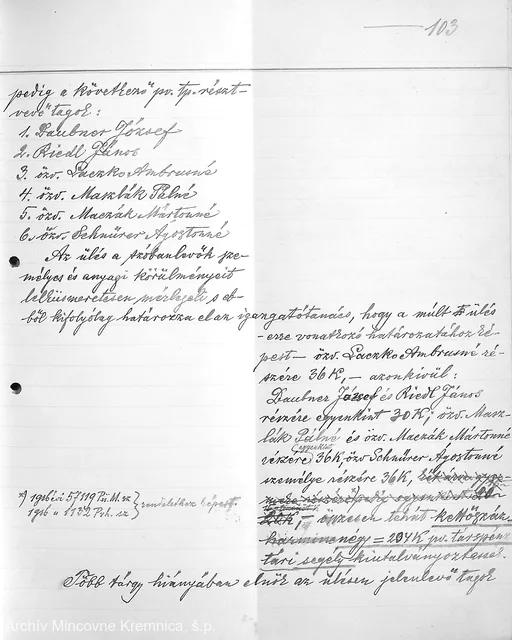 103
pedig a következő pv. tp. részt-
vevő tagok:
1. Daubner József
2. Riedl János
3. özv. Laczko Ambrusné
4. özv. Maszlák Pálné
5. özv. Maczák Mártonné
6. özv. Schnürer Ágostonné
Az ülés a szóbanlevők sze-
mélyes és anyagi körülményeit
lelkiismeretesen mérlegeli s eb-
ből kifolyólag határozza el az igazgatótanács, hogy a múlt ülés
-erre vonatkozó határozatához ké-
pest - özv. Laczko Ambrusné ré-
szére 36 K, - azonkivül:
Daubner József és Riedl János
részére egyenkint 30 K; özv. Masz-
lák Pálné és özv. Maczák Mártonné
részére egyenkint 36 K özv. Schnürer Ágostonné
személye részére 36 K,
összesen tehát kettőszáz-
harmincnégy = 204 K pv. társpénz
tári segély kiutalványoztassék.
rendeletekhez képest
Több tárgy hiányában elnök az ülésen jelenlevő tagok
Archív Mincovne Kremnica, š.p.